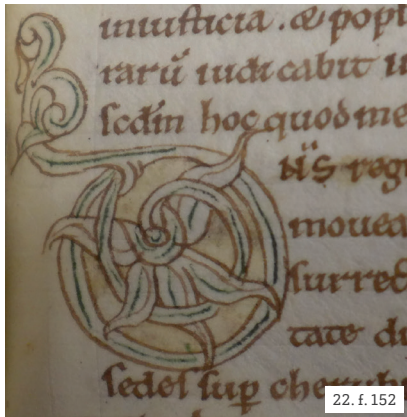 iniusticia . & popl
rarū iudicabit i
scdm hoc quod me
Dn̄S reg
mouea
surrec
tate di
sedes sup cherub
22. f. 152